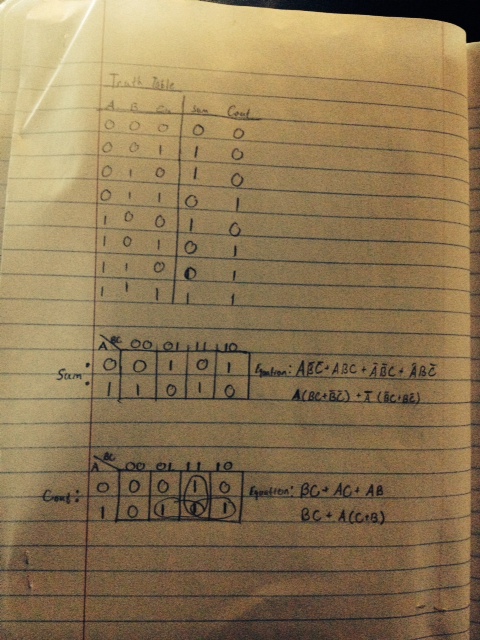 Truth Table
A B Cin Sum Cout
0 0 0 0 0
0 0 1 1 0
0 1 0 1 0
0 1 1 0 1
1 0 0 1 0
1 0 1 0 1
1 1 0 0 1
1 1 1 1 1
A BC 00 01 11 10
Sum: 0 0 1 0 1 Equation: AB̅C̅ + ABC + A̅B̅C + A̅BC̅
1 1 0 1 0 A(BC+B̅C̅) + A̅(B̅C+BC̅)
A BC 00 01 11 10
Cout: 0 0 0 1 0 Equation: BC + AC + AB
1 0 1 1 1 BC + A(C+B)